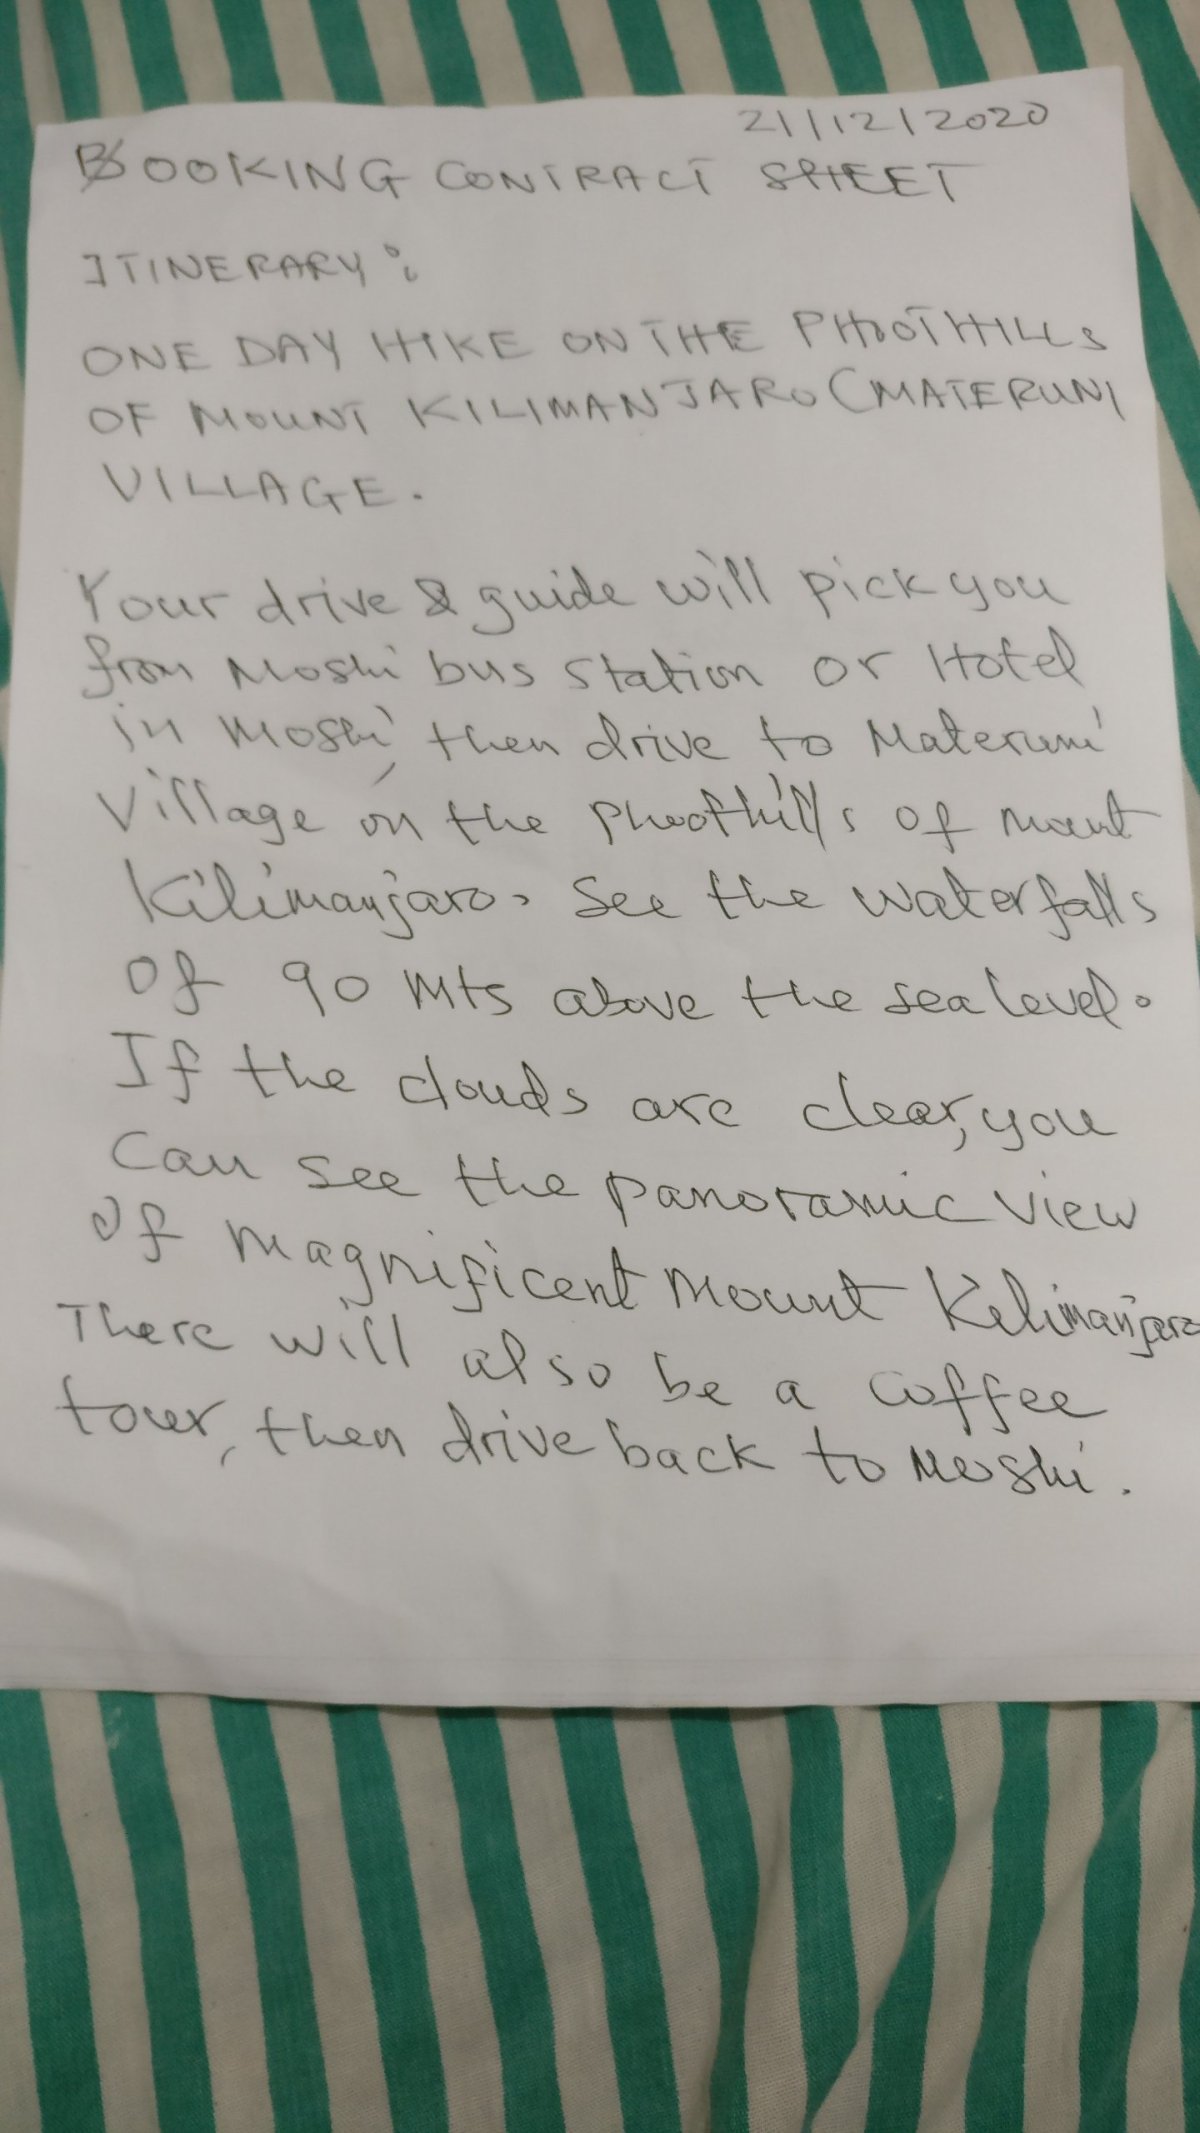 21/12/2020
BOOKING CONTRACT SHEET
ITINERARY:
ONE DAY HIKE ON THE PHOOTHILLS
OF MOUNT KILIMANJARO (MATERUNI
VILLAGE.
Your drive & guide will pick you
from Moshi bus station or Hotel
in Moshi, then drive to Materuni
Village on the phoothills of mount
Kilimanjaro. See the waterfalls
of 90 Mts above the sea level.
If the clouds are clear, you
can see the panoramic view
of magnificent Mount Kilimanjaro
There will also be a coffee
tour, then drive back to Moshi.